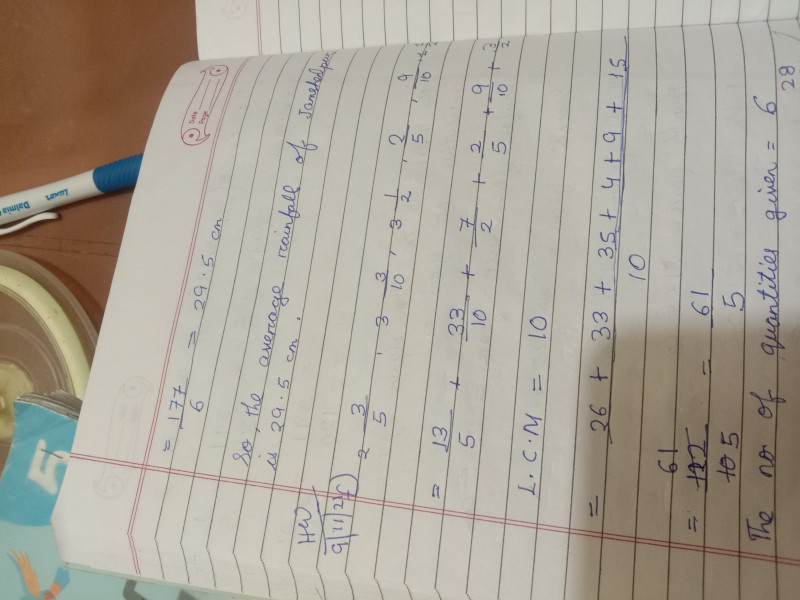 Date
Page
= 177/6 = 29.5 cm
So, the average rainfall of Jamshedpur
is 29.5 cm.
HW
9/11/24
f) 2 3/5, 3 3/10, 3 1/2, 2/5, 9/10,
= 13/5 + 33/10 + 7/2 + 2/5 + 9/10 + 3/2
L.C.M = 10
= 26 + 33 + 35 + 4 + 9 + 15 / 10
= 61 122 / 10 5 = 61/5
The no of quantities given = 6
28
Luxor
5